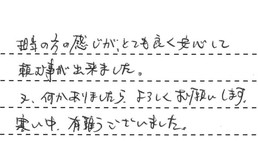 担当の方の感じが、とても良く安心して
頼む事が出来ました。
又、何かありましたら、よろしくお願いします。
寒い中、有難うございました。